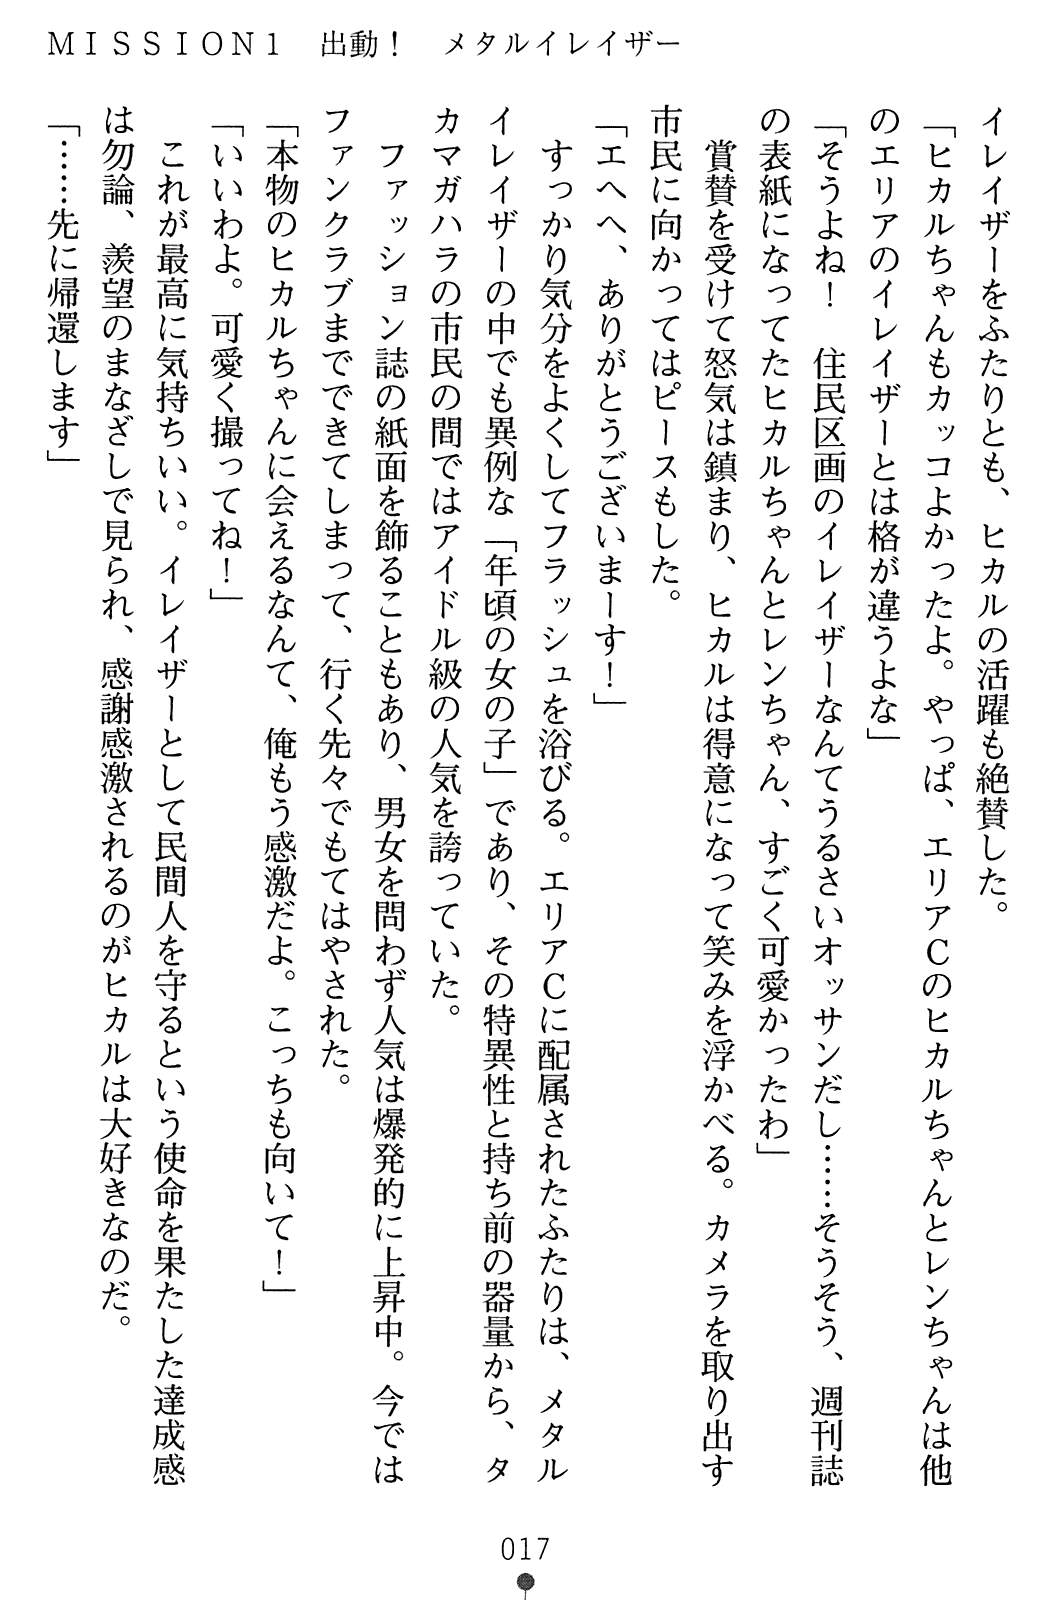 MISSION1　出動！　メタルイレイザー
イレイザーをふたりとも、ヒカルの活躍も絶賛した。
「ヒカルちゃんもカッコよかったよ。やっぱ、エリアCのヒカルちゃんとレンちゃんは他
のエリアのイレイザーとは格が違うよな」
「そうよね！　住民区画のイレイザーなんてうるさいオッサンだし……そうそう、週刊誌
の表紙になってたヒカルちゃんとレンちゃん、すごく可愛かったわ」
　賞賛を受けて怒気は鎮まり、ヒカルは得意になって笑みを浮かべる。カメラを取り出す
市民に向かってはピースもした。
「エへへ、ありがとうございまーす！」
　すっかり気分をよくしてフラッシュを浴びる。エリアCに配属されたふたりは、メタル
イレイザーの中でも異例な「年頃の女の子」であり、その特異性と持ち前の器量から、タ
カマガハラの市民の間ではアイドル級の人気を誇っていた。
　ファッション誌の紙面を飾ることもあり、男女を問わず人気は爆発的に上昇中。今では
ファンクラブまでできてしまって、行く先々でもてはやされた。
「本物のヒカルちゃんに会えるなんて、俺もう感激だよ。こっちも向いて！」
「いいわよ。可愛く撮ってね！」
　これが最高に気持ちいい。イレイザーとして民間人を守るという使命を果たした達成感
は勿論、羨望のまなざしで見られ、感謝感激されるのがヒカルは大好きなのだ。
「……先に帰還します」
017